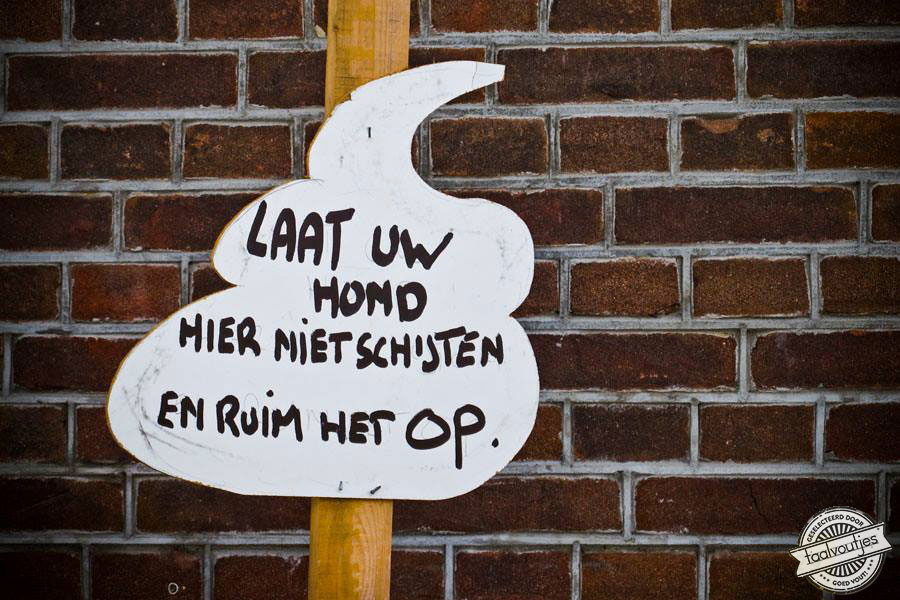 LAAT UW
HOND
HIER NIET SCHIJTEN
EN RUIM HET OP.
GESELECTEERD DOOR
taalvoutjes
GOED VOUT!